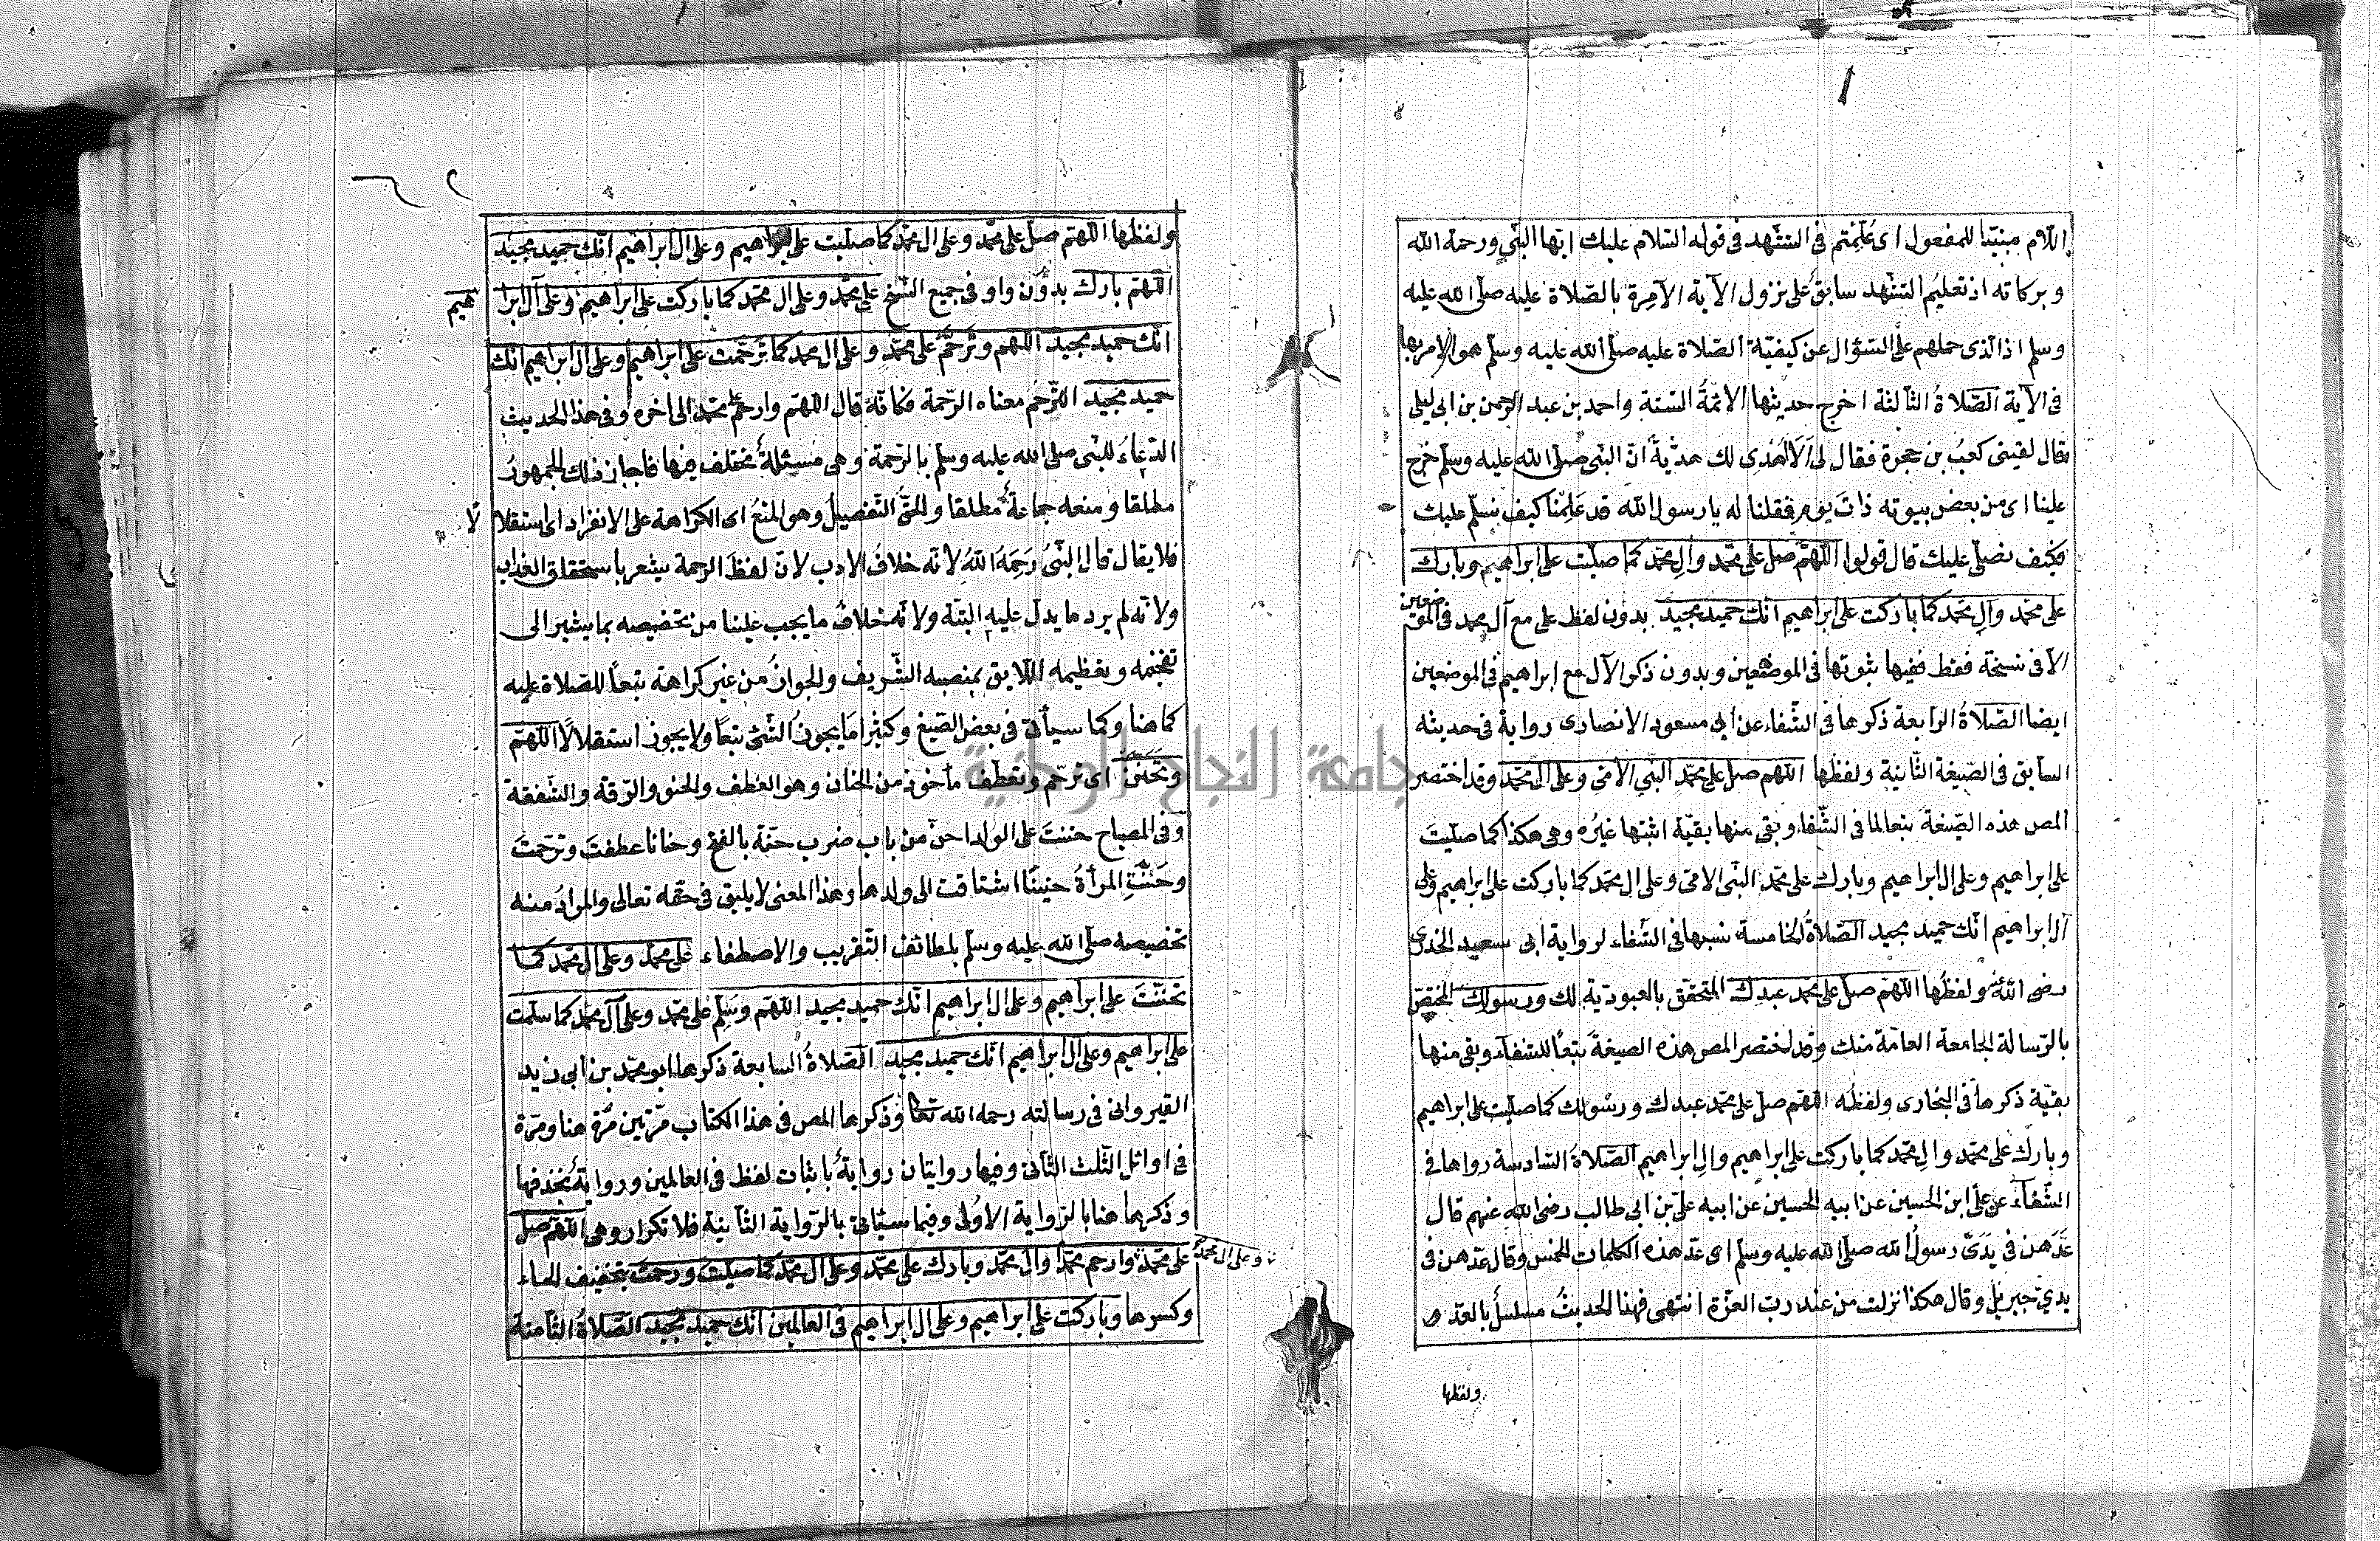 اللام مبنيا للمفعول اى عُلِّمْتم فى التشهد فى قوله السلام عليك ايها النبى ورحمة الله
وبركاته اذ تعليمُ التشهد سابقٌ على نزول الآية الآمِرة بالصّلاة عليه صلى الله عليه
وسلم اذ الذى حملهم على السّؤال عن كيفية الصّلاة عليه صلى الله عليه وسلم هو الامر بها
فى الآية الصّلاةُ الثالثة اخرج حديثها الائمّةُ الستة واحمد بن عبد الرحمن بن ابى ليلى
قال لقينى كعبُ بن عجرة فقال لى اَلَا اُهْدِى لك هديّةً انّ النبى صلى الله عليه وسلم خرج
علينا اى من بعض بيوته ذات يوم فقلنا له يا رسول الله قد عَلِمْنا كيف نسلّم عليك
فكيف نصلّى عليك قال قولوا اللهمّ صل على محمّد وآلِ محمّد كما صلّيت على ابراهيم وبارك
على محمّد وآلِ محمّد كما باركت على ابراهيم انّك حميد مجيد بدون لفظ على مع آل محمد فى الموضعين
الا فى نسخة فقط ففيها ثبوتها فى الموضعين وبدون ذكر الآل مع ابراهيم فى الموضعين
ايضا الصّلاةُ الرّابعة ذكرها فى الشّفاء عن ابى مسعود الانصارى رواية فى حديثه
السّابق فى الصّيغة الثّانية ولفظها اللهم صل على محمّد النّبى الامّى وعلى ال محمّد وقد اختصر
المص هذه الصّيغة تبعا لما فى الشّفاء وبقى منها بقيّة اثبتها غيُره وهى هكذا كما صلّيتَ
على ابراهيم وعلى ال ابراهيم وبارك على محمّد النّبى الامّى وعلى ال محمّد كما باركت على ابراهيم وعلى
آل ابراهيم انّك حميد مجيد الصّلاةُ الخامسة نسبها فى الشّفاء لرواية ابى سعيد الخدرى
رضى الله عنه ولفظُها اللهمّ صلّ على محمّد عبدك المتحقق بالعبوديّة لك ورسولك المختصّ
بالرّسالة الجامعة العامّة منك وقد اختصر المص هذه الصيغةَ تبعًا للشفاء وبقى منها
بقيّة ذكرها فى البخارى ولفظُه اللهمّ صل على محمّد عبدك ورسُولك كما صلّيت على ابراهيم
وبارك على محمّد والِ محمّد كما باركت على ابراهيم والِ ابراهيم الصّلاةُ السّادسة رواها فى
الشّفآء عن علىّ ابن الحسين عن ابيه الحسين عن ابيه علىّ بن ابى طالب رضى الله عنهم قال
عَدّهن فى يَدَىَّ رسولُ الله صلى الله عليه وسلم اى عدّ هذه الكلمات الخمس وقال عدّهن فى
يدىّ جبريل وقال هكذا نزلت من عند ربّ العزّة انتهى فهذا الحديثُ مسلسلٌ بالعدّ
ولفظها
ولفظها اللهمّ صلّ على محمّد وعلى ال محمّد كما صلّيت على ابراهيم وعلى ال ابراهيم انّك حميد مجيد
اللهم بارك بدُوْن واو فى جميع النّسخ على محمّد وعلى ال محمّد كما باركت على ابراهيم وعلى آل ابراهيم
انّك حميد مجيد اللهم وتَرَحَّمْ على محمّد وعلى ال محمد كما ترحّمت على ابراهيم وعلى ال ابراهيم انّك
حميد مجيد التّرحّمُ معناه الرّحمة فكانّهُ قال اللهمّ وارحم محمّدا الى آخره وفى هذا الحديث
الدّعاءُ للنّبى صلى الله عليه وسلم بالرّحمة وهى مسئلةٌ مختلف فيها فاجاز ذلك الجمهورُ
مطلقا ومنعه جماعةٌ مطلقا والحقُّ التّفصيلُ وهو المنعُ اى الكراهة على الانفراد اى استقلالا
فلا يقال قال النّبىُّ رَحِمَهُ اللهُ لانّه خلافُ الادب لانّ لفظَ الرحمة يشعر باستحقاق العذاب
ولانّه لم يرد ما يدلّ عليه البتّة ولانّه خلافُ ما يجب علينا من تخصيصه بما يشير الى
تفخيمه وتعظيمه اللّايق بمنصبه الشّريف والجوازُ من غير كراهة تبعاً للصّلاة عليه
كما هنا وكما سيأتى فى بعض الصّيغ وكثيرا مَا يجوزُ الشّئُ تبعًا ولا يجوز استقلالًا اللهمّ
وتَحَنَّنْ اى ترحّم وتعطّف مأخوذ من الحنان وهو العَطف والحنو والرّقّة والشّفقة
وفى المصباح حننتُ على الولد احنّ من باب ضرب حنّة بالفتح وحنانا عطفتُ وترحّمت
وحَنَّتِ المرأةُ حنينًا اشتاقت الى ولدها وهذا المعنى لا يليق فى حقّه تعالى والمرادُ منه
تخصيصه صلى الله عليه وسلم بلطائف التّقريب والاصطفاء على محمّد وعلى ال محمّد كما
تحنّنْتَ على ابراهيم وعلى ال ابراهيم انّك حميد مجيد اللهمّ وسَلِّم على محمّد وعلى آل محمّد كما سلّمت
على ابراهيم وعلى ال ابراهيم انّك حميد مجيد الصّلاةُ السابعة ذكرها ابو محمّد بن ابى زيد
القيروانى فى رسالته رحمه الله تعا وذكرها المص فى هذا الكتاب مرّتين مَرّةً هنا ومرّة
فى اوائل الثّلث الثّانى وفيها روايتان روايةٌ باثبات لفظ فى العالمين وروايةٌ بحذفها
وذكرها هنا بالرّواية الاُولى وفيما سيأتى بالرّواية الثّانية فلا تكرار وهى اللهمّ صل
على محمّد وعلى ال محمّد وارحم محمّدًا وآلَ محمّد وبارك على محمّد وعلى ال محمّد كما صلّيت ورحمتَ بتخفيف الحاء
وكسرها وباركت على ابراهيم وعلى ال ابراهيم فى العالمين انّك حميد مجيد الصّلاةُ الثّامنة
جامعة النجاح الوطنية